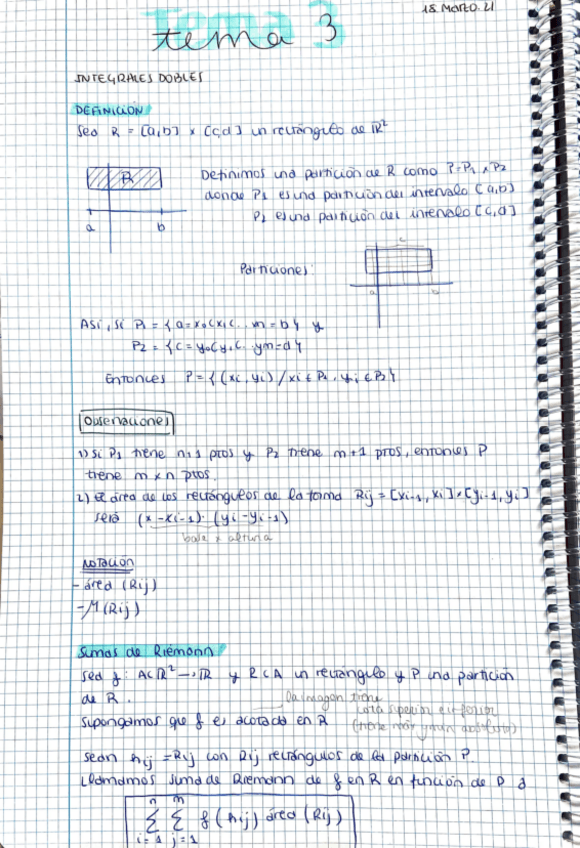 18. Marzo. 21
tema 3
INTEGRALES DOBLES
DEFINICIÓN
Sea R = [a,b] x [c,d] un rectángulo de ℝ²
R
a b
Definimos una partición de R como P = P₁ x P₂
donde P₁ es una partición del intervalo [a,b]
P₂ es una partición del intervalo [c,d]
Particiones:
Así, si P₁ = {a=x₀<x₁<...xn=b} y
P₂ = {c=y₀<y₁<...ym=d}
Entonces P = {(xi, yi) / xi ∈ P₁, yi ∈ P₂}
Observaciones
1) Si P₁ tiene n+1 ptos y P₂ tiene m+1 ptos, entonces P
tiene m x n ptos.
2) El área de los rectángulos de la forma Rij = [xi-1, xi] x [yi-1, yi]
será (x - xi-1) · (yi - yi-1)
base x altura
Notación
- área (Rij)
- M (Rij)
Sumas de Riemann
Sea f: A⊂ℝ² → ℝ y R⊂A un rectángulo y P una partición
de R.
la imagen tiene
cota superior e inferior
Supongamos que f es acotada en R
(tiene máx y mín absoluto)
Sean hij = Rij con Rij rectángulos de la partición P.
Llamamos suma de Riemann de f en R en función de P a
n m
∑ ∑ f (hij) área (Rij)
i=1 j=1